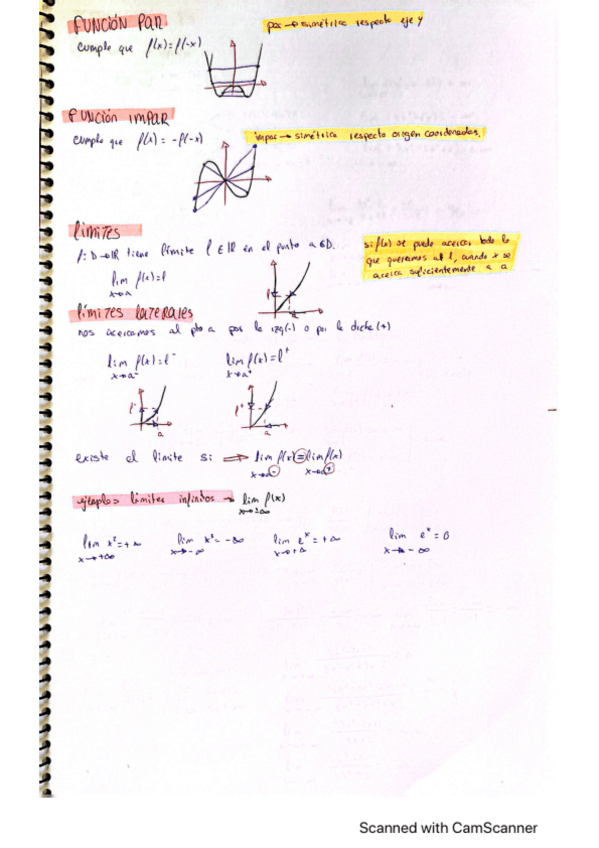 FUNCIÓN PAR
par → simétrica respecto eje y
cumple que f(x)=f(-x)
FUNCIÓN IMPAR
impar → simétrica respecto origen coordenadas.
cumple que f(x) = -f(-x)
LÍMITES
f: D→ℝ tiene límite l ∈ ℝ en el punto a ∈ D.
si f(x) se puede acercar todo lo
que queramos al l, cuando x se
acerca suficientemente a a
lim f(x)=l
x→a
l
a
LÍMITES LATERALES
nos acercamos al pto a por la izq(-) o por la dcha(+)
lim f(x)=l⁻ lim f(x)=l⁺
x→a⁻ x→a⁺
l⁻ l⁺
a a
existe el límite si ⇒ lim f(x) = lim f(x)
x→a⁻ x→a⁺
ejemplos límites infinitos → lim f(x)
x→±∞
lim x²=+∞ lim x³=-∞ lim eˣ=+∞ lim eˣ=0
x→+∞ x→-∞ x→+∞ x→-∞
Scanned with CamScanner